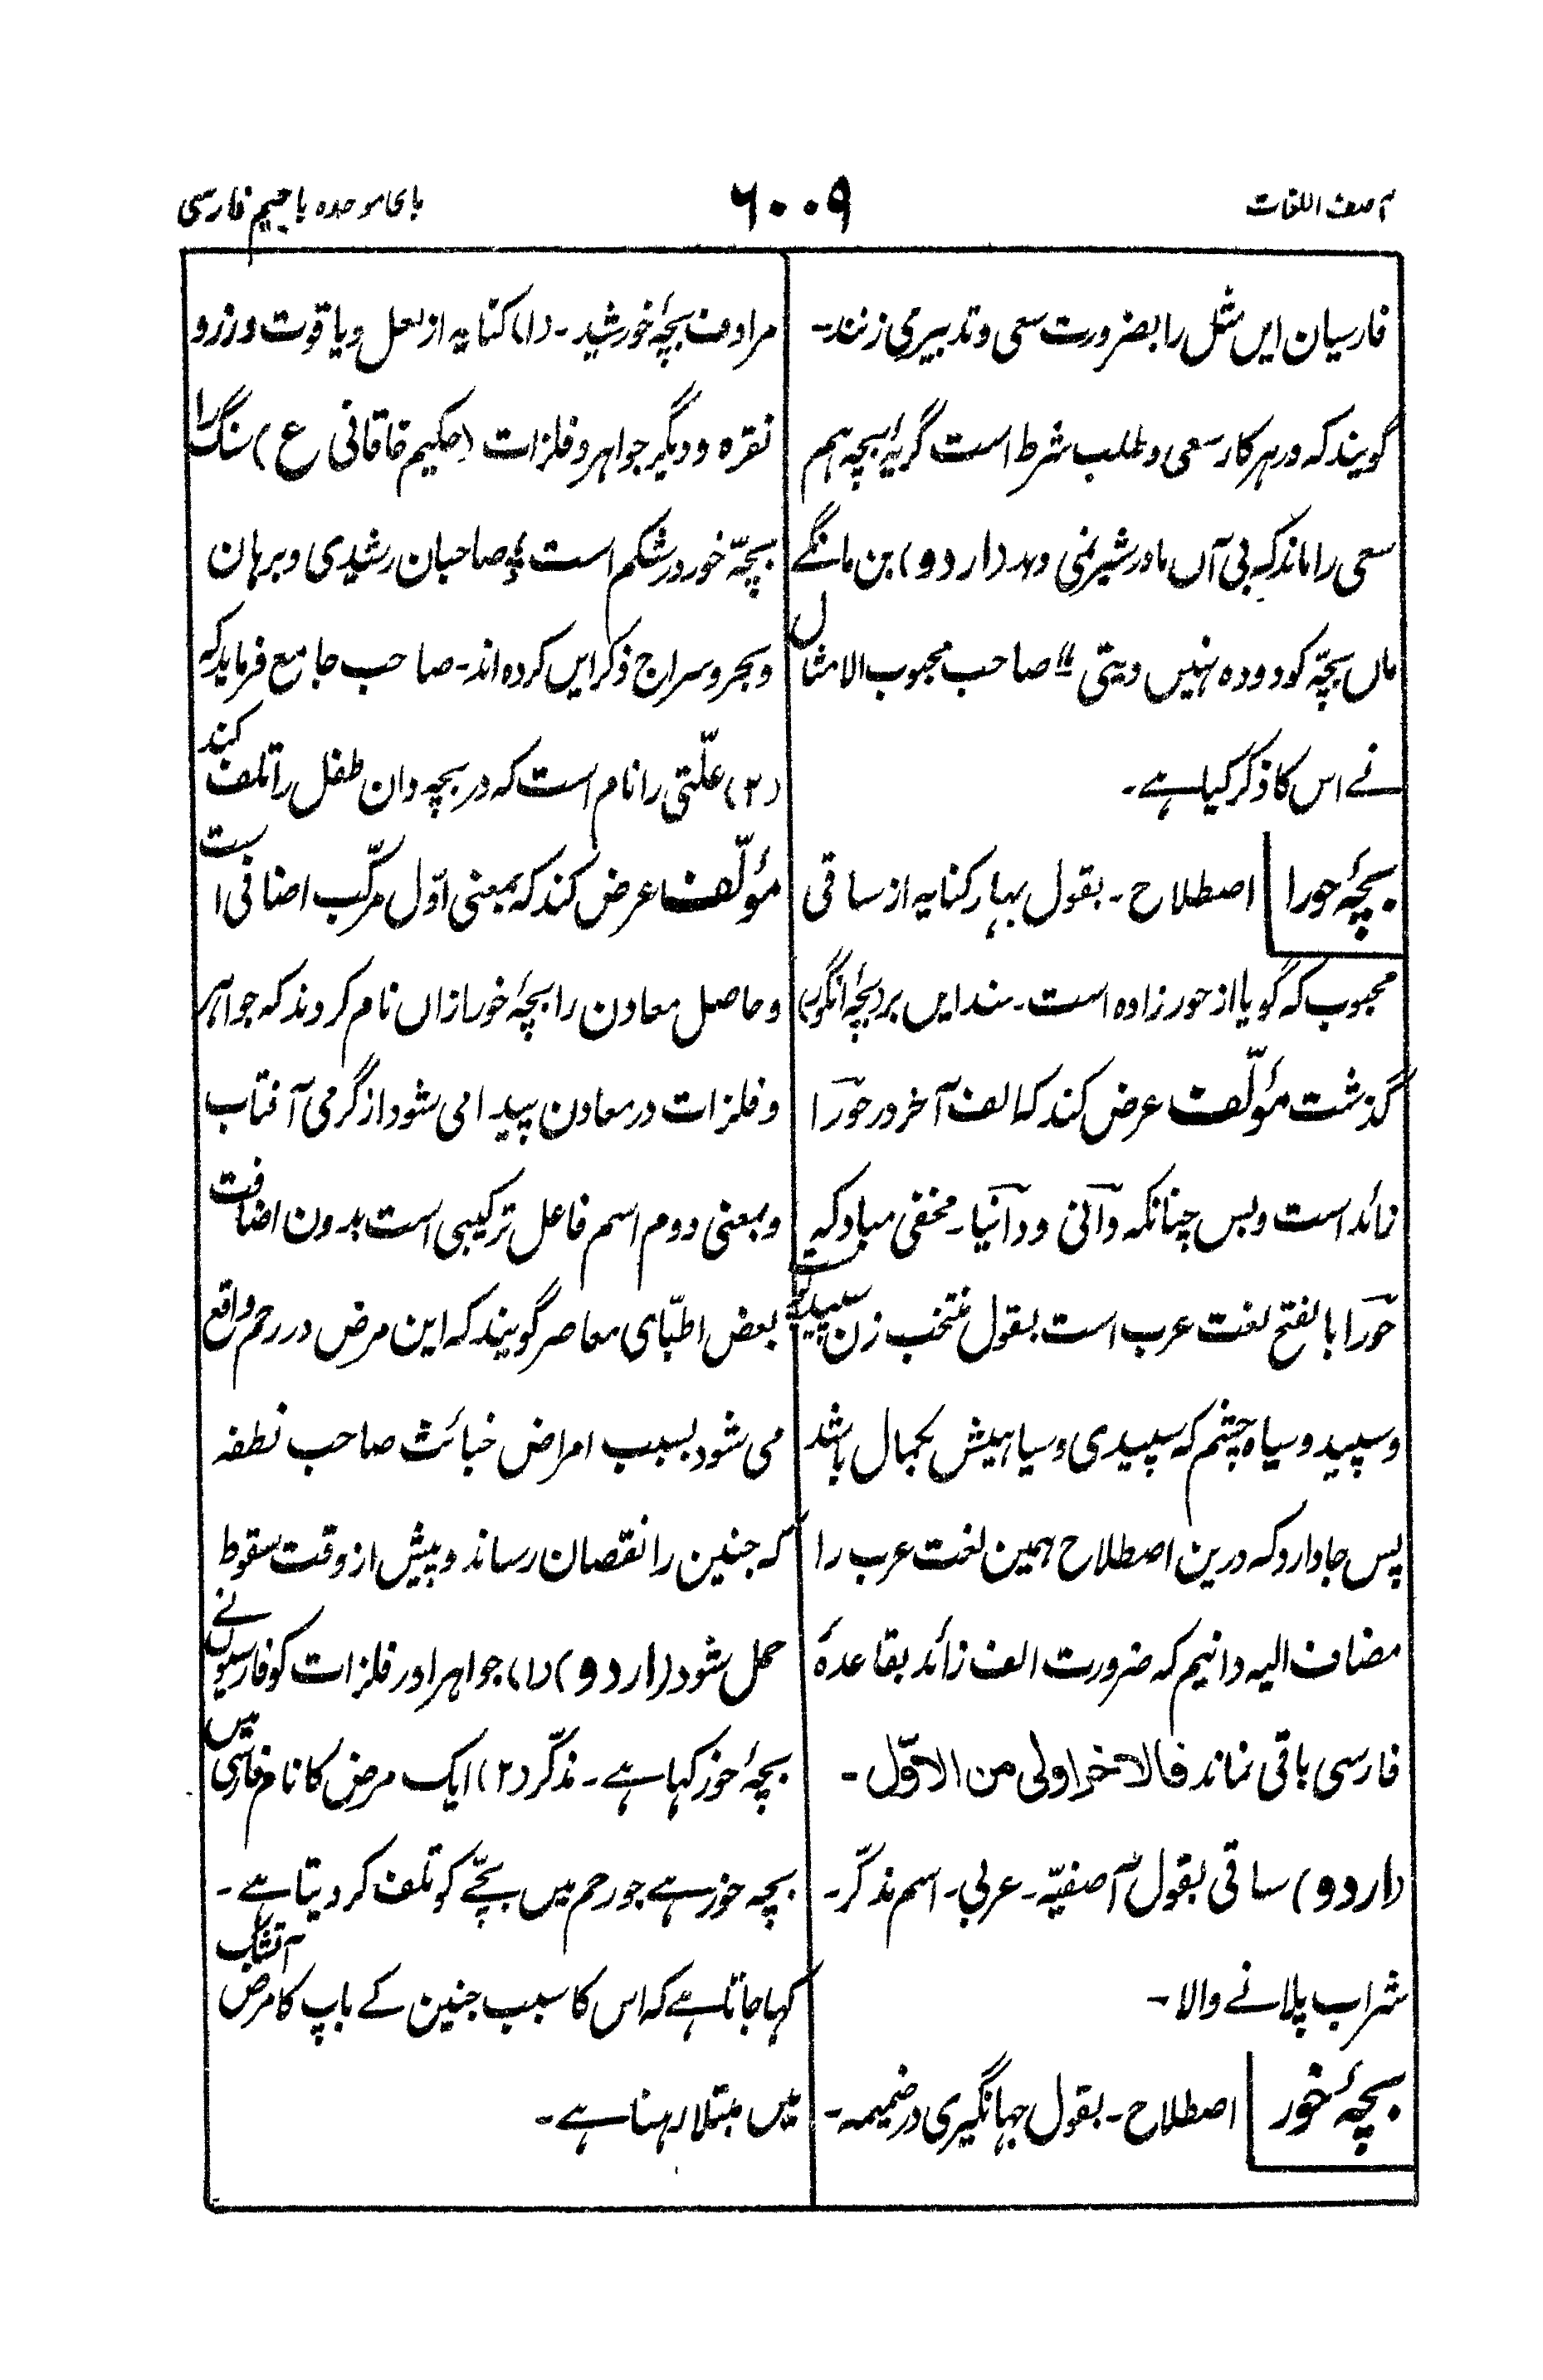 آصف اللغات
۶۰۰۹
بای موحده با جیم فارسی
فارسیان ایں مثل را بضرورت سعی و تدبیر می زنند۔
گویند کہ در ہر کار سعی و طلب شرط است گریۂ بچہ ہم
سعی را ماند کہ بی آں مادر شیر نمی دہد (اردو) بن مانگے
ماں بچّہ کو دودہ نہیں دیتی ؎ صاحب محبوب الامثال
نے اس کا ذکر کیا ہے۔
بچۂ حورا اصطلاح۔ بقول بہار کنایہ از ساقی
محبوب کہ گویا از حور زادہ است۔ سند ایں بر (بچۂ انگور)
گذشت مؤلّف عرض کند کہ الف آخر در حورا
زائد است و بس چنانکہ دانی و دانیا۔ مخفی مباد کہ
حورا بالفتح لغت عرب است بقول منتخب زن سپید پوست
و سپید و سیاہ چشم کہ سپیدی و سیاہیش بکمال باشد
پس جا دارد کہ درین اصطلاح ہمین لغت عرب را
مضاف الیہ دانیم کہ ضرورت الف زائد بقاعدۂ
فارسی باقی نماند فالآخر اولی من الاوّل۔
(اردو) ساقی بقول آصفیّہ۔ عربی۔ اسم مذکّر۔
شراب پلانے والا۔
بچۂ خور اصطلاح۔ بقول جہانگیری در ضمیمہ۔
مرادف بچۂ خورشید۔ (۱) کنایہ از لعل و یاقوت و زر و
نقرہ و دیگر جواہر و فلزات (حکیم خاقانی ع) سنگ را
بچّہ خور در شکم است ؏ صاحبان رشیدی و برہان
و بحر و سراج ذکر ایں کردہ اند۔ صاحب جامع فرماید کہ
(۲) علّتی را نام است کہ در بچہ دان طفل را تلف کند
مؤلّف عرض کند کہ بمعنی اوّل مرکّب اضافی است
و حاصل معادن را بچۂ خور ازاں نام کردند کہ جواہر
و فلزات در معادن پیدا می شود از گرمی آفتاب
و بمعنی دوم اسم فاعل ترکیبی است بدون اضافت
بعض اطبّای معاصر گویند کہ این مرض در رحم واقع
می شود بسبب امراض خبائث صاحب نطفہ
کہ جنین را نقصان رساند و پیش از وقت سقوط
حمل شود (اردو) (۱) جواہر اور فلزات کو فارسیوں نے
بچۂ خور کہا ہے۔ مذکّر (۲) ایک مرض کا نام فارسی میں
بچہ خور ہے جو رحم میں بچّے کو تلف کر دیتا ہے۔
کہا جاتا ہے کہ اس کا سبب جنین کے باپ کا مرض آتشک
میں مبتلا رہنا ہے۔